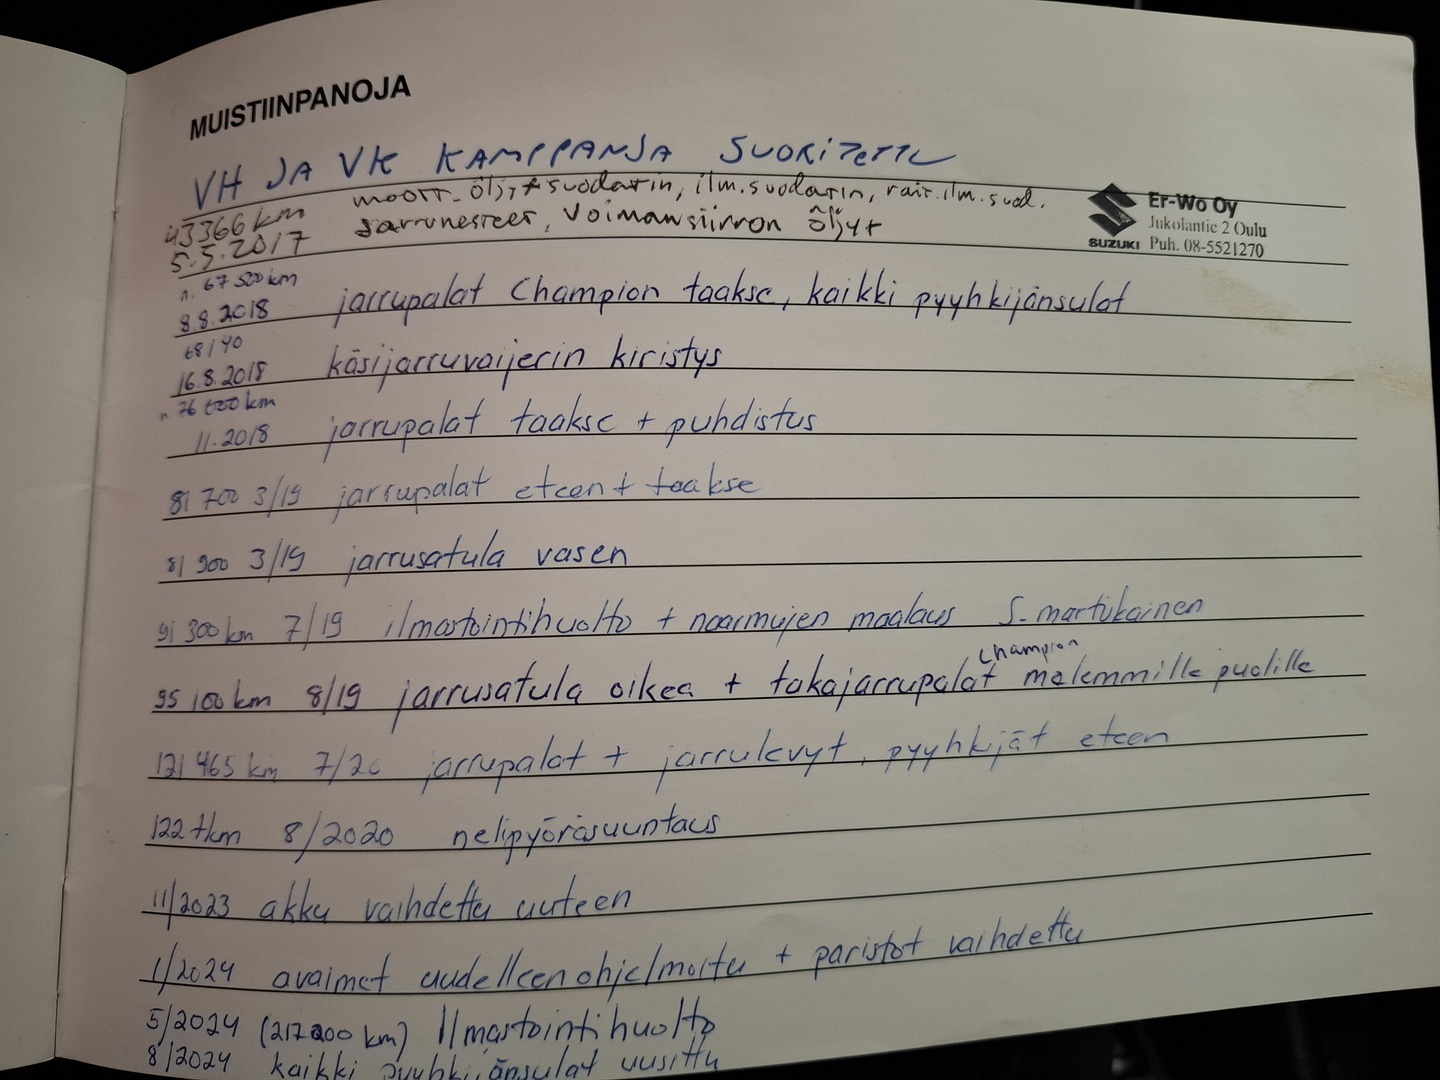 MUISTIINPANOJA
VH JA VK KAMPPANJA SUORITETTU
43366 km moott. öljyt+suodatin, ilm.suodatin, rait.ilm.suod.
5.5.2017 Jarrunesteet, Voimansiirron öljyt
SUZUKI
Er-Wo Oy
Jukolantie 2 Oulu
Puh. 08-5521270
n. 67 500 km
8.8.2018 jarrupalat Champion taakse, kaikki pyyhkijänsulat
68140
16.8.2018 käsijarruvaijerin kiristys
n. 76 000 km
11.2018 jarrupalat taakse + puhdistus
81 700 3/19 jarrupalat eteen + taakse
81 900 3/19 jarrusatula vasen
91 300 km 7/19 ilmastointihuolto + naarmujen maalaus S. martikainen
champion
95 100 km 8/19 jarrusatula oikea + takajarrupalat molemmille puolille
121 465 km 7/20 jarrupalat + jarrulevyt, pyyhkijät eteen
122 tkm 8/2020 nelipyöräsuuntaus
11/2023 akku vaihdettu uuteen
1/2024 avaimet uudelleenohjelmoitu + paristot vaihdettu
5/2024 (217200 km) Ilmastointihuolto
8/2024 kaikki pyyhkijänsulat uusittu